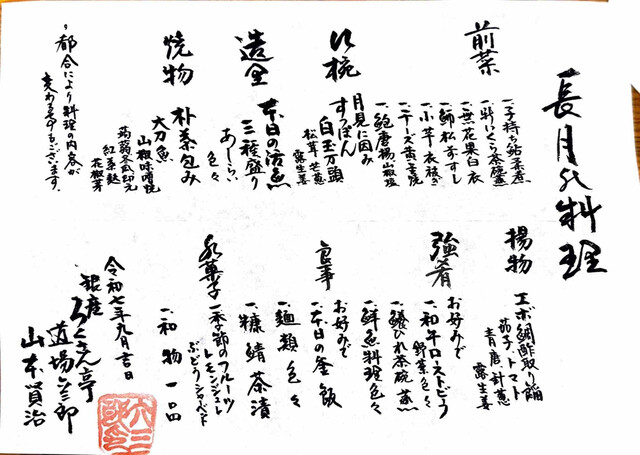 長月の料理
前菜
一、子持ち鮎 煮浸
一、新いくら 茶碗蒸
一、無花果白衣
一、鯛松前すし
一、小芋衣被ぎ
一、チーズ黄金焼
一、鮑唐揚 山椒塩
吸椀
月見に因み
すっぽん
白玉万頭
松茸 芒葱
露生姜
造里
本日の活魚
三種盛り
あしらい
色々
焼物
朴葉包み
太刀魚
山椒味噌焼
蒟蒻 冬瓜 印元
紅葉麩
花椒芽
都合により料理の内容が
変わる事もございます。
揚物
エボ鯛酢取り餡
茄子、トマト
青唐 針葱
露生姜
強肴
お好みで
一、和牛ローストビーフ
野菜色々
一、鱶ひれ茶碗蒸
一、鮮魚料理色々
食事
お好みで
一、本日の釜飯
一、麺類色々
一、糠鯖茶漬
水菓子
一、季節のフルーツ
レモンジュレ
ぶどうシャーベット
一、和物一品
令和七年九月吉日
銀座 ろくさん亭
道場六三郎
山本賢治